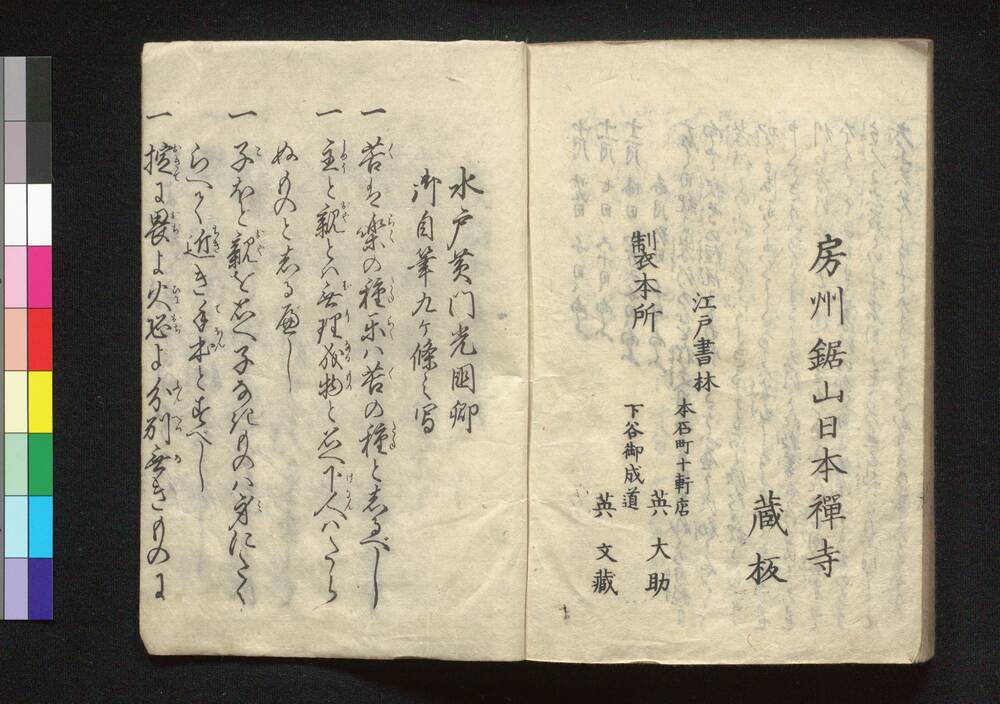 房州鋸山日本禪寺
蔵板
江戸書林
本石町十軒店
英大助
下谷御成道
英文藏
製本所
水戸黄門光圀卿
御自筆九ケ條之写
一 苦は樂の種樂ハ苦の種としるべし
一 主と親とハ無理成物とおもへ下人ハたら
ぬものとしるべし
一 子ほと親をおもへ子なきものハ身にたく
らへて近き手本とすべし
一 掟に畏よ火に恐よ分別なきものに